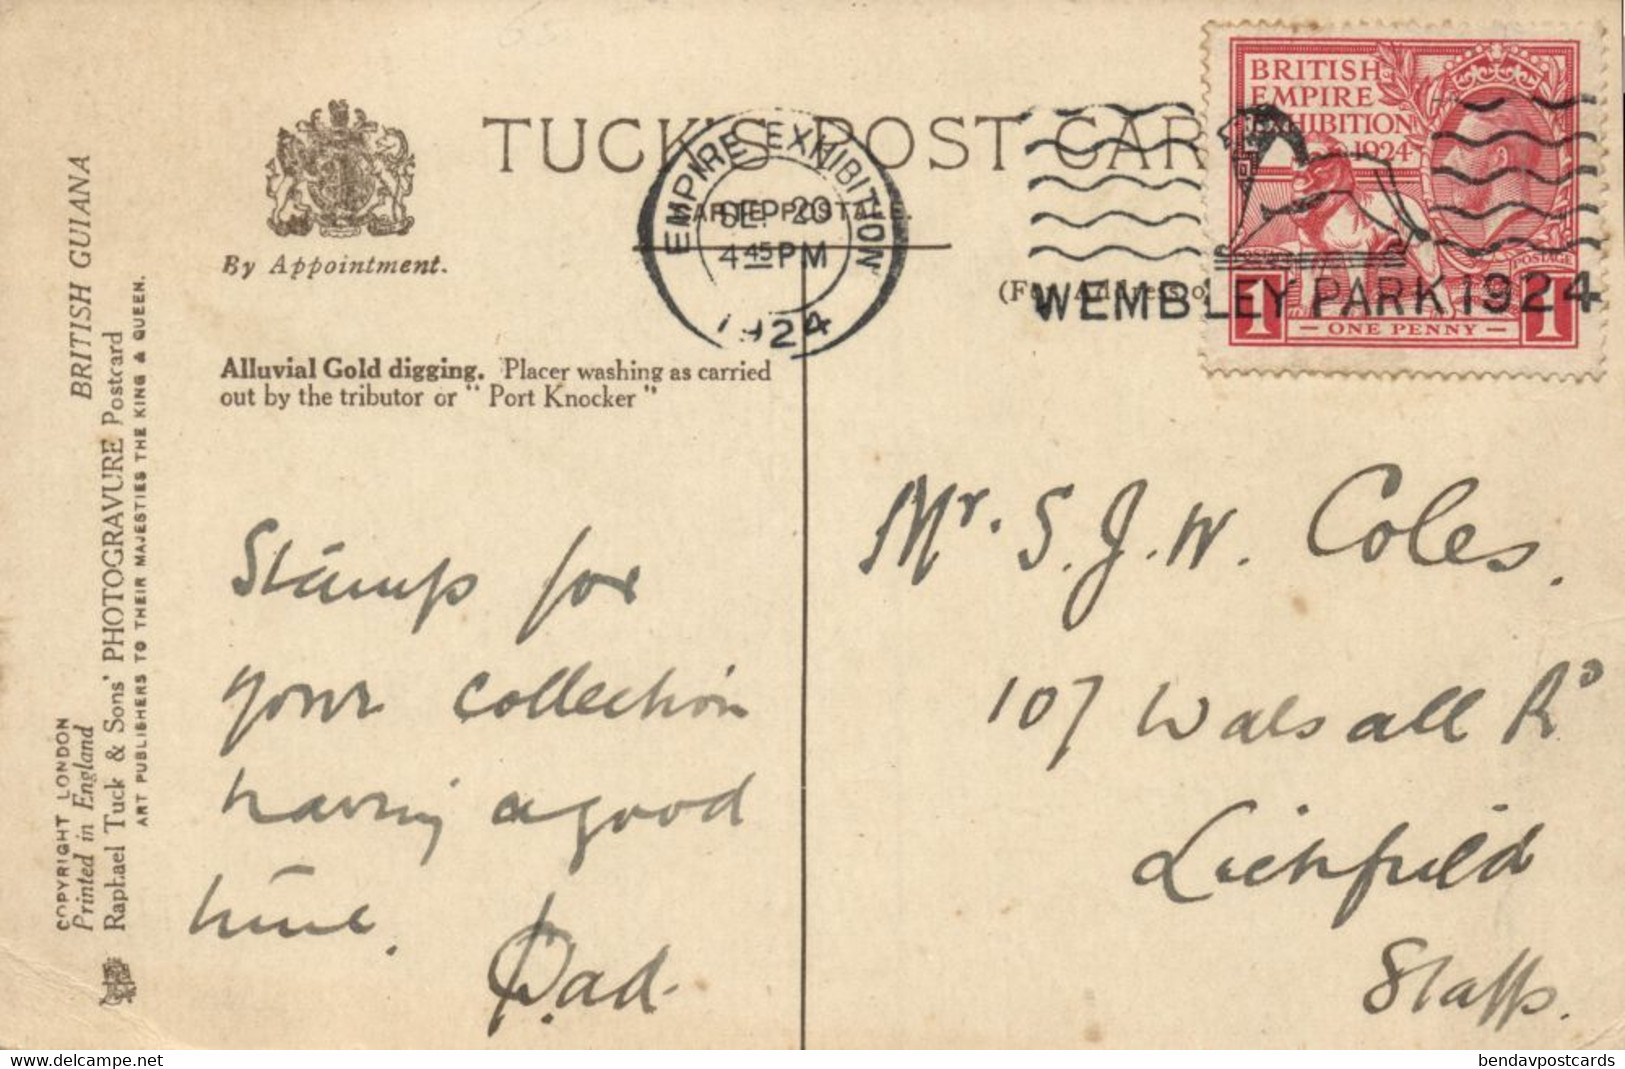 TUCK'S POST CAR
CARTE POSTALE.
By Appointment.
EMPIRE EXHIBITION
SEP 20
4 45 PM
1924
WEMBLEY PARK 1924
BRITISH
EMPIRE
EXHIBITION
1924
POSTAGE
1 ONE PENNY 1
(For Address o
Alluvial Gold digging. Placer washing as carried
out by the tributor or "Port Knocker"
Stamp for
your collection
having a good
time.
Dad.
Mr. S. J. W. Coles.
107 Walsall Rd
Lichfield
Staffs.
BRITISH GUIANA
COPYRIGHT LONDON
Printed in England
Raphael Tuck & Sons' PHOTOGRAVURE Postcard
ART PUBLISHERS TO THEIR MAJESTIES THE KING & QUEEN.
the-matic.net
bendavpostcards